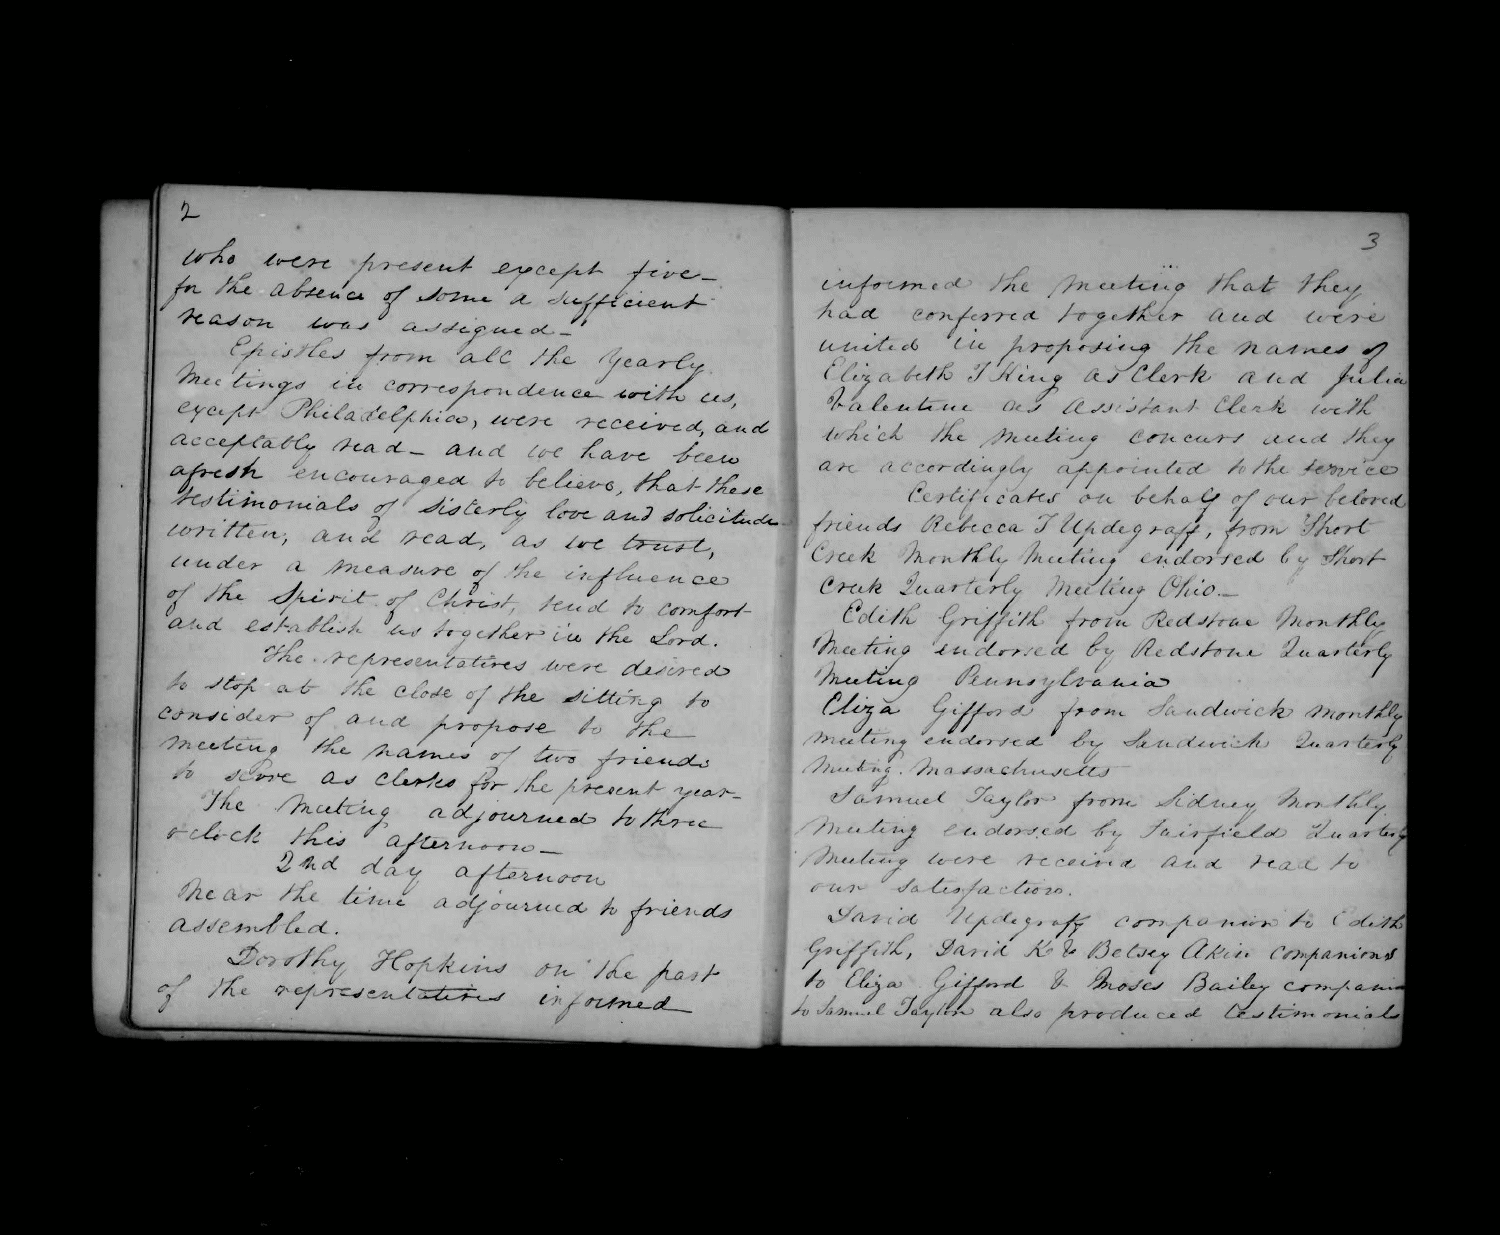 2
who were present except five–
for the absence of some a sufficient
reason was assigned–
Epistles from all the Yearly
Meetings in correspondence with us,
except Philadelphia, were received, and
acceptably read– and we have been
afresh encouraged to believe, that these
testimonials of Sisterly love and solicitude
written, and read, as we trust,
under a measure of the influence
of the Spirit of Christ, tend to comfort
and establish us together in the Lord.
The representatives were desired
to stop at the close of the sitting to
consider of and propose to the
meeting the names of two friends
to serve as clerks for the present year–
The Meeting adjourned to three
oclock this afternoon–
2nd day afternoon
Near the time adjourned to friends
assembled.
Dorothy Hopkins on the part
of the representatives informed
3
informed the Meeting that they
had conferred together and were
united in proposing the names of
Elizabeth T King as Clerk and Julia
Valentine as Assistant Clerk with
which the meeting concurs and they
are accordingly appointed to the service
Certificates on behalf of our beloved
friends Rebecca T Updegraff, from Short
Creek Monthly Meeting endorsed by Short
Creek Quarterly Meeting Ohio–
Edith Griffith from Redstone Monthly
Meeting endorsed by Redstone Quarterly
Meeting Pennsylvania
Eliza Gifford from Sandwick Monthly
Meeting endorsed by Sandwich Quarterly
Meeting. Massachusetts
Samuel Taylor from Sidney Monthly
Meeting endorsed by Fairfield Quarterly
Meeting were received and read to
our satisfaction.
David Updegraff companion to Edith
Griffith, David K & Betsey Akin companions
to Eliza Gifford & Moses Bailey companion
to Samuel Taylor also produced testimonials